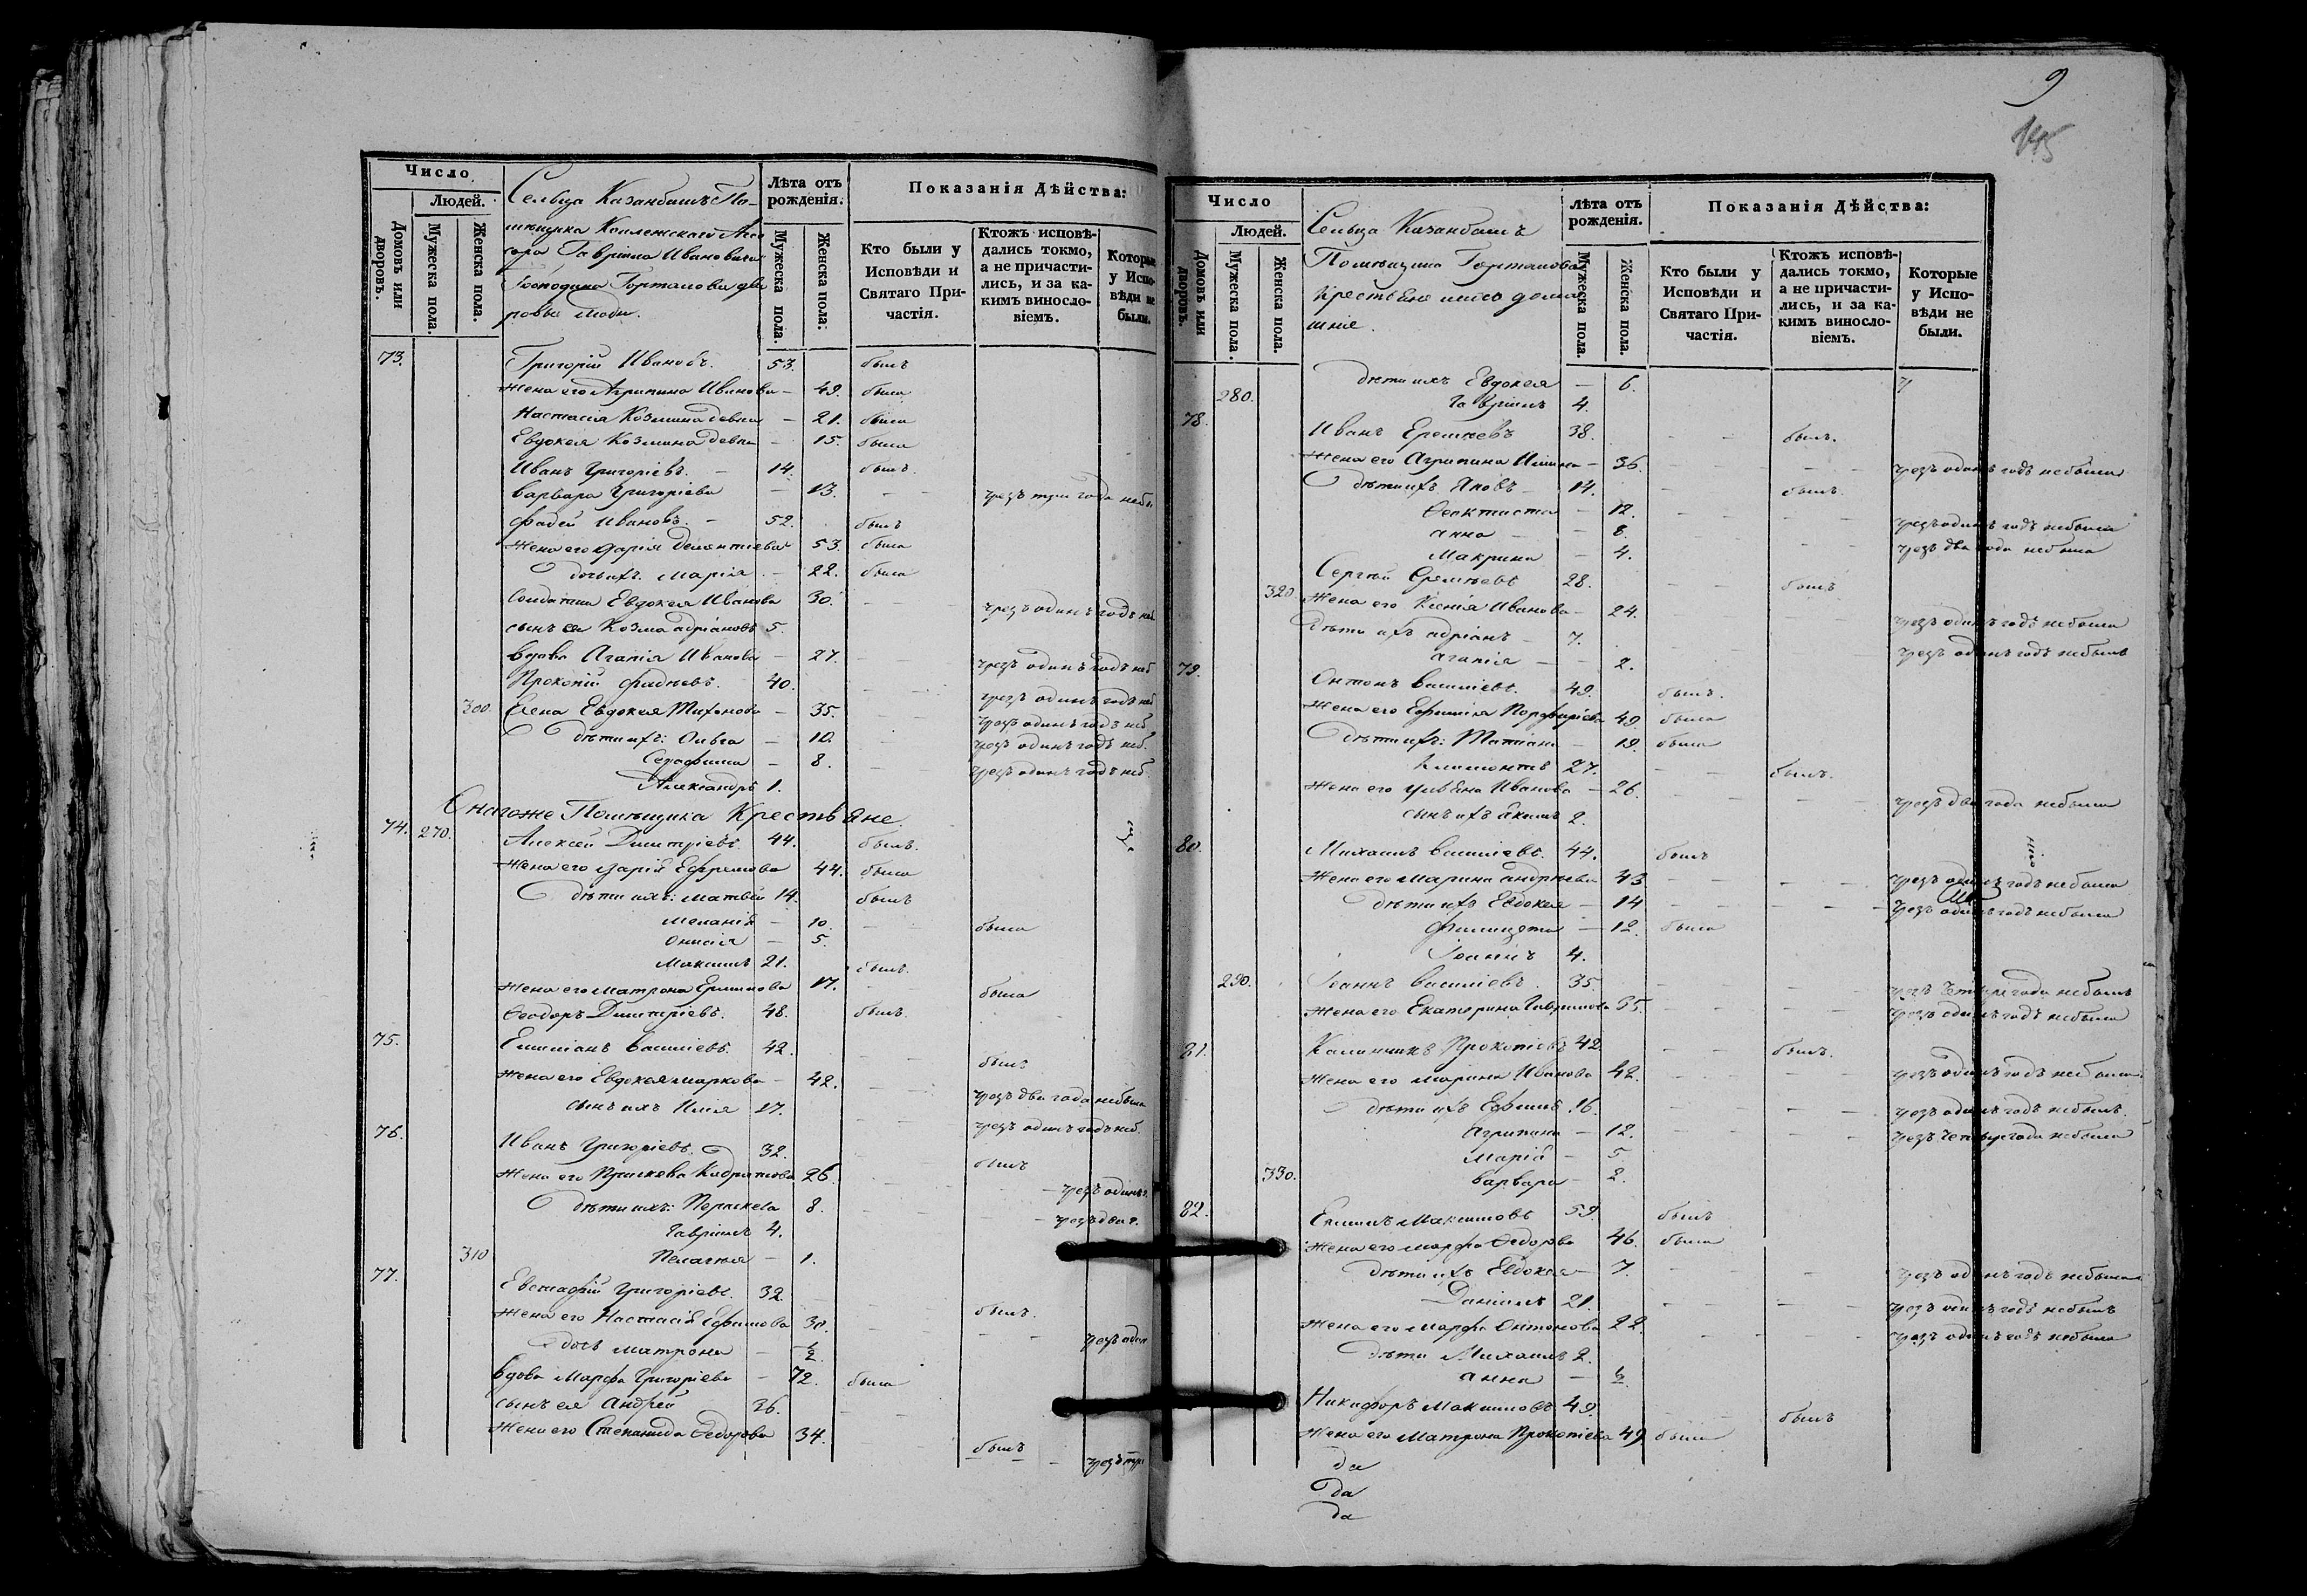 Число
Людей.
Домовъ или дворовъ.
Мужеска пола.
Женска пола.
Сельца Казанбашъ По-
мѣщика Коллежскаго Ассе
сора Гавріила Ивановича
Господина Горталова дво
ровые люди.
Лѣта отъ рожденія.
Мужеска пола.
Женска пола:
Показанія Дѣйства:
Кто были у Исповѣди и Святаго При-частія.
Ктожъ исповѣ-дались токмо, а не причасти-лись, и за ка-кимъ винословіемъ.
Которые у Испо-вѣди не были.
73. Григорій Ивановъ. 53. былъ
жена его Агрипина Иванова — 49. была
Настасія Козмина девка — 21. была
Евдокея Козмина девка — 15. была
Иванъ Григоріевъ. — 14. былъ.
варвара Григоріева — 13. — — чрезъ три года небы
фадей Ивановъ. — 52. былъ
жена его дарія дементиева 53. была
дочь ихъ. Марія — 22. была
Солдатка Евдокея Иванова 30. — — чрезъ одинъ годъ неб
сынъ ея Козма адріановъ 5.
вдова Агапія Иванова — 27. — — чрезъ одинъ годъ неб
Прокопій фадѣевъ. 40. — — чрезъ одинъ годъ неб
300. жена Евдокея Тихонова — 35. — — чрезъ одинъ годъ неб
дѣти ихъ: Ольга — 10. — чрезъ одинъ годъ неб.
Серафима — 8. — чрезъ одинъ годъ неб.
Александръ 1.
Онагоже Помѣщика Крестьяне
74. 270. Алексей Димитріевъ. 44. былъ.
жена его дарія Ефремова 44. была
дѣти ихъ: матвѣй 14. былъ
меланія — 10. — — была
онисія — 5.
Максимъ 21. былъ.
жена его матрона Ермилова 17. — — была
Феодоръ Димитріевъ. 48. былъ. —
75. Емиліанъ Василіевъ. 42. — былъ
жена его Евдокея маркова — 42. — — чрезъ два года небыла
сынъ ихъ Илія 17. — — чрезъ одинъ годъ неб.
76. Иванъ Григоріевъ. 32. — былъ
жена его Праскева Кодратова 26. — — — чрезъ одинъ г.
дѣти ихъ: Параскева 8. — — — чрезъ два г.
Гавріилъ 4.
310 Пелагея — 1.
77. Евстафій Григоріевъ. 32. — — былъ.
жена его Настасія Ефимова 30. — — — чрезъ один
дочь матрона — ½
вдова Марфа Григоріева — 72. была
сынъ ея андрей 36. — — былъ
жена его Степанида Федорова 34. — чрезъ три
9
145
Число
Людей.
Домовъ или дворовъ.
Мужеска пола.
Женска пола.
Сельца Казанбашъ
Помѣщика Горталова
Крестьяне
шніе.
Лѣта отъ рожденія.
Мужеска пола.
Женска пола.
Показанія Дѣйства:
Кто были у Исповѣди и Святаго При-частія.
Ктожъ исповѣ-дались токмо, а не причасти-лись, и за ка-кимъ винословіемъ.
Которые у Испо-вѣди не были.
дѣти ихъ Евдокея — 6.
280. Гавріилъ 4.
78. Иванъ Еремѣевъ 38. — — былъ.
жена его Агрипина Ильина — 36. — — — — чрезъ одинъ годъ небыла
дѣти ихъ Яковъ — 14. — былъ.
Феоктиста — 12. — — — — чрезъ одинъ годъ небыла
анна — 8. — — чрезъ два года небыла
Макрина — 4.
Сергѣй Еремѣевъ 28. — — былъ
320 жена его Ксенія Иванова — 24. — — — — чрезъ одинъ годъ небыла
дѣти ихъ адріанъ — 7. — — — — чрезъ одинъ годъ небылъ
агапія — — 2.
79. Онтонъ василіевъ. 49. былъ.
жена его Евфимія Порфиріева 49 была
дѣти ихъ: Татіана — 19. была
Климонтъ 27. — — былъ.
жена его уліяна Иванова — 26. — — — — чрезъ два года небыла
сынъ ихъ акимъ 2.
80. Михаилъ василіевъ. 44. былъ
жена его Марина андреева 43 — — — — чрезъ одинъ годъ небыла
дѣти ихъ Евдокея — 14 — — — — чрезъ одинъ годъ небыла
филицата — 12. была
Іоаннъ 4.
290. Іоаннъ василіевъ. 35. — — — чрезъ четыре года небылъ
жена его Екатерина Гаврилова 35. — — — — чрезъ одинъ годъ небыла
81. Калинникъ Прокопіевъ 42 — — былъ.
жена его марина Иванова 42. — — — — чрезъ одинъ годъ небыла
дѣти ихъ Ефимъ 16. — — — — чрезъ одинъ годъ небылъ.
Агрипина — 12. — — — — чрезъ четыре года небыла
Марія — 5
330. варвара — 2.
82. Емилъ Максимовъ 59. былъ
жена его марфа Федорова 46. была
дѣти ихъ Евдокея — 7. — — — чрезъ одинъ годъ небыла
Даніилъ 21. — — — — чрезъ одинъ годъ небылъ
жена его марфа Онтонова 22. — — — — чрезъ одинъ годъ небыла
дѣти Михаилъ 2.
анна — ½
Никифоръ Максимовъ 49. — — былъ
жена его матрона Прокопіева 49 была
да
да
да